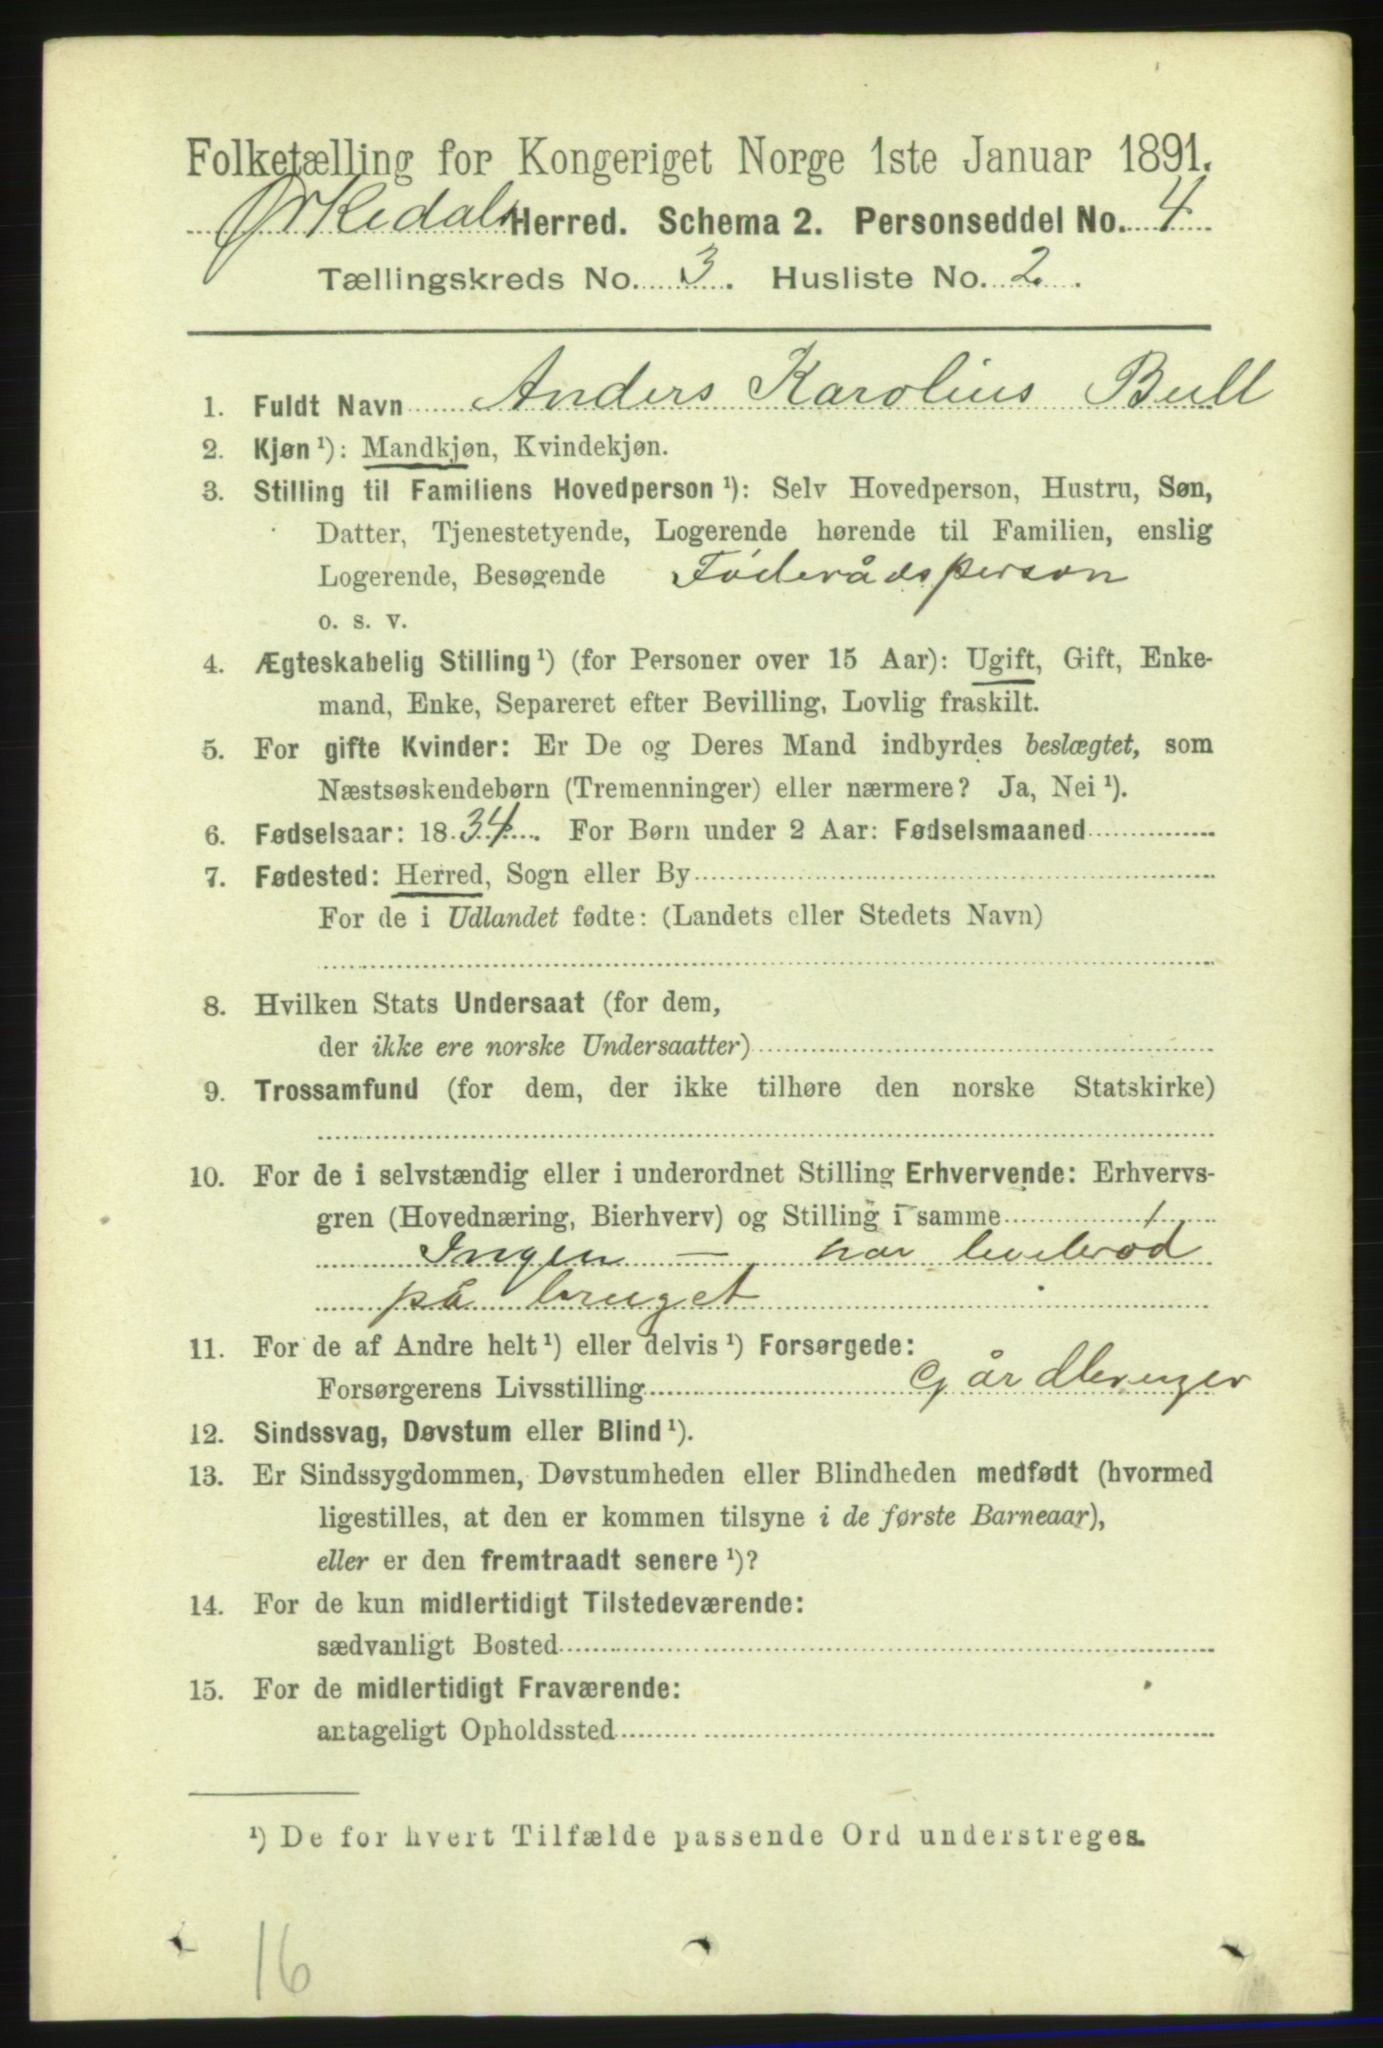 Folketælling for Kongeriget Norge 1ste Januar 1891.
Ørkedals Herred. Schema 2. Personseddel No. 4
Tællingskreds No. 3. Husliste No. 2.
1. Fuldt Navn Anders Karolius Bull
2. Kjøn ¹): Mandkjøn, Kvindekjøn.
3. Stilling til Familiens Hovedperson ¹): Selv Hovedperson, Hustru, Søn,
Datter, Tjenestetyende, Logerende hørende til Familien, enslig
Logerende, Besøgende Føderådsperson
o. s. v.
4. Ægteskabelig Stilling ¹) (for Personer over 15 Aar): Ugift, Gift, Enke-
mand, Enke, Separeret efter Bevilling, Lovlig fraskilt.
5. For gifte Kvinder: Er De og Deres Mand indbyrdes beslægtet, som
Næstsøskendebørn (Tremenninger) eller nærmere? Ja, Nei ¹).
6. Fødselsaar: 1834. For Børn under 2 Aar: Fødselsmaaned
7. Fødested: Herred, Sogn eller By
For de i Udlandet fødte: (Landets eller Stedets Navn)
8. Hvilken Stats Undersaat (for dem,
der ikke ere norske Undersaatter)
9. Trossamfund (for dem, der ikke tilhøre den norske Statskirke)
10. For de i selvstændig eller i underordnet Stilling Erhvervende: Erhvervs-
gren (Hovednæring, Bierhverv) og Stilling i samme
Ingen — har levebrød
på bruget
11. For de af Andre helt ¹) eller delvis ¹) Forsørgede:
Forsørgerens Livsstilling Gårdbruger
12. Sindssvag, Døvstum eller Blind ¹).
13. Er Sindssygdommen, Døvstumheden eller Blindheden medfødt (hvormed
ligestilles, at den er kommen tilsyne i de første Barneaar),
eller er den fremtraadt senere ¹)?
14. For de kun midlertidigt Tilstedeværende:
sædvanligt Bosted
15. For de midlertidigt Fraværende:
antageligt Opholdssted
¹) De for hvert Tilfælde passende Ord understreges.
16